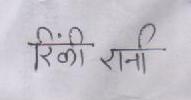 रिंकी रानी